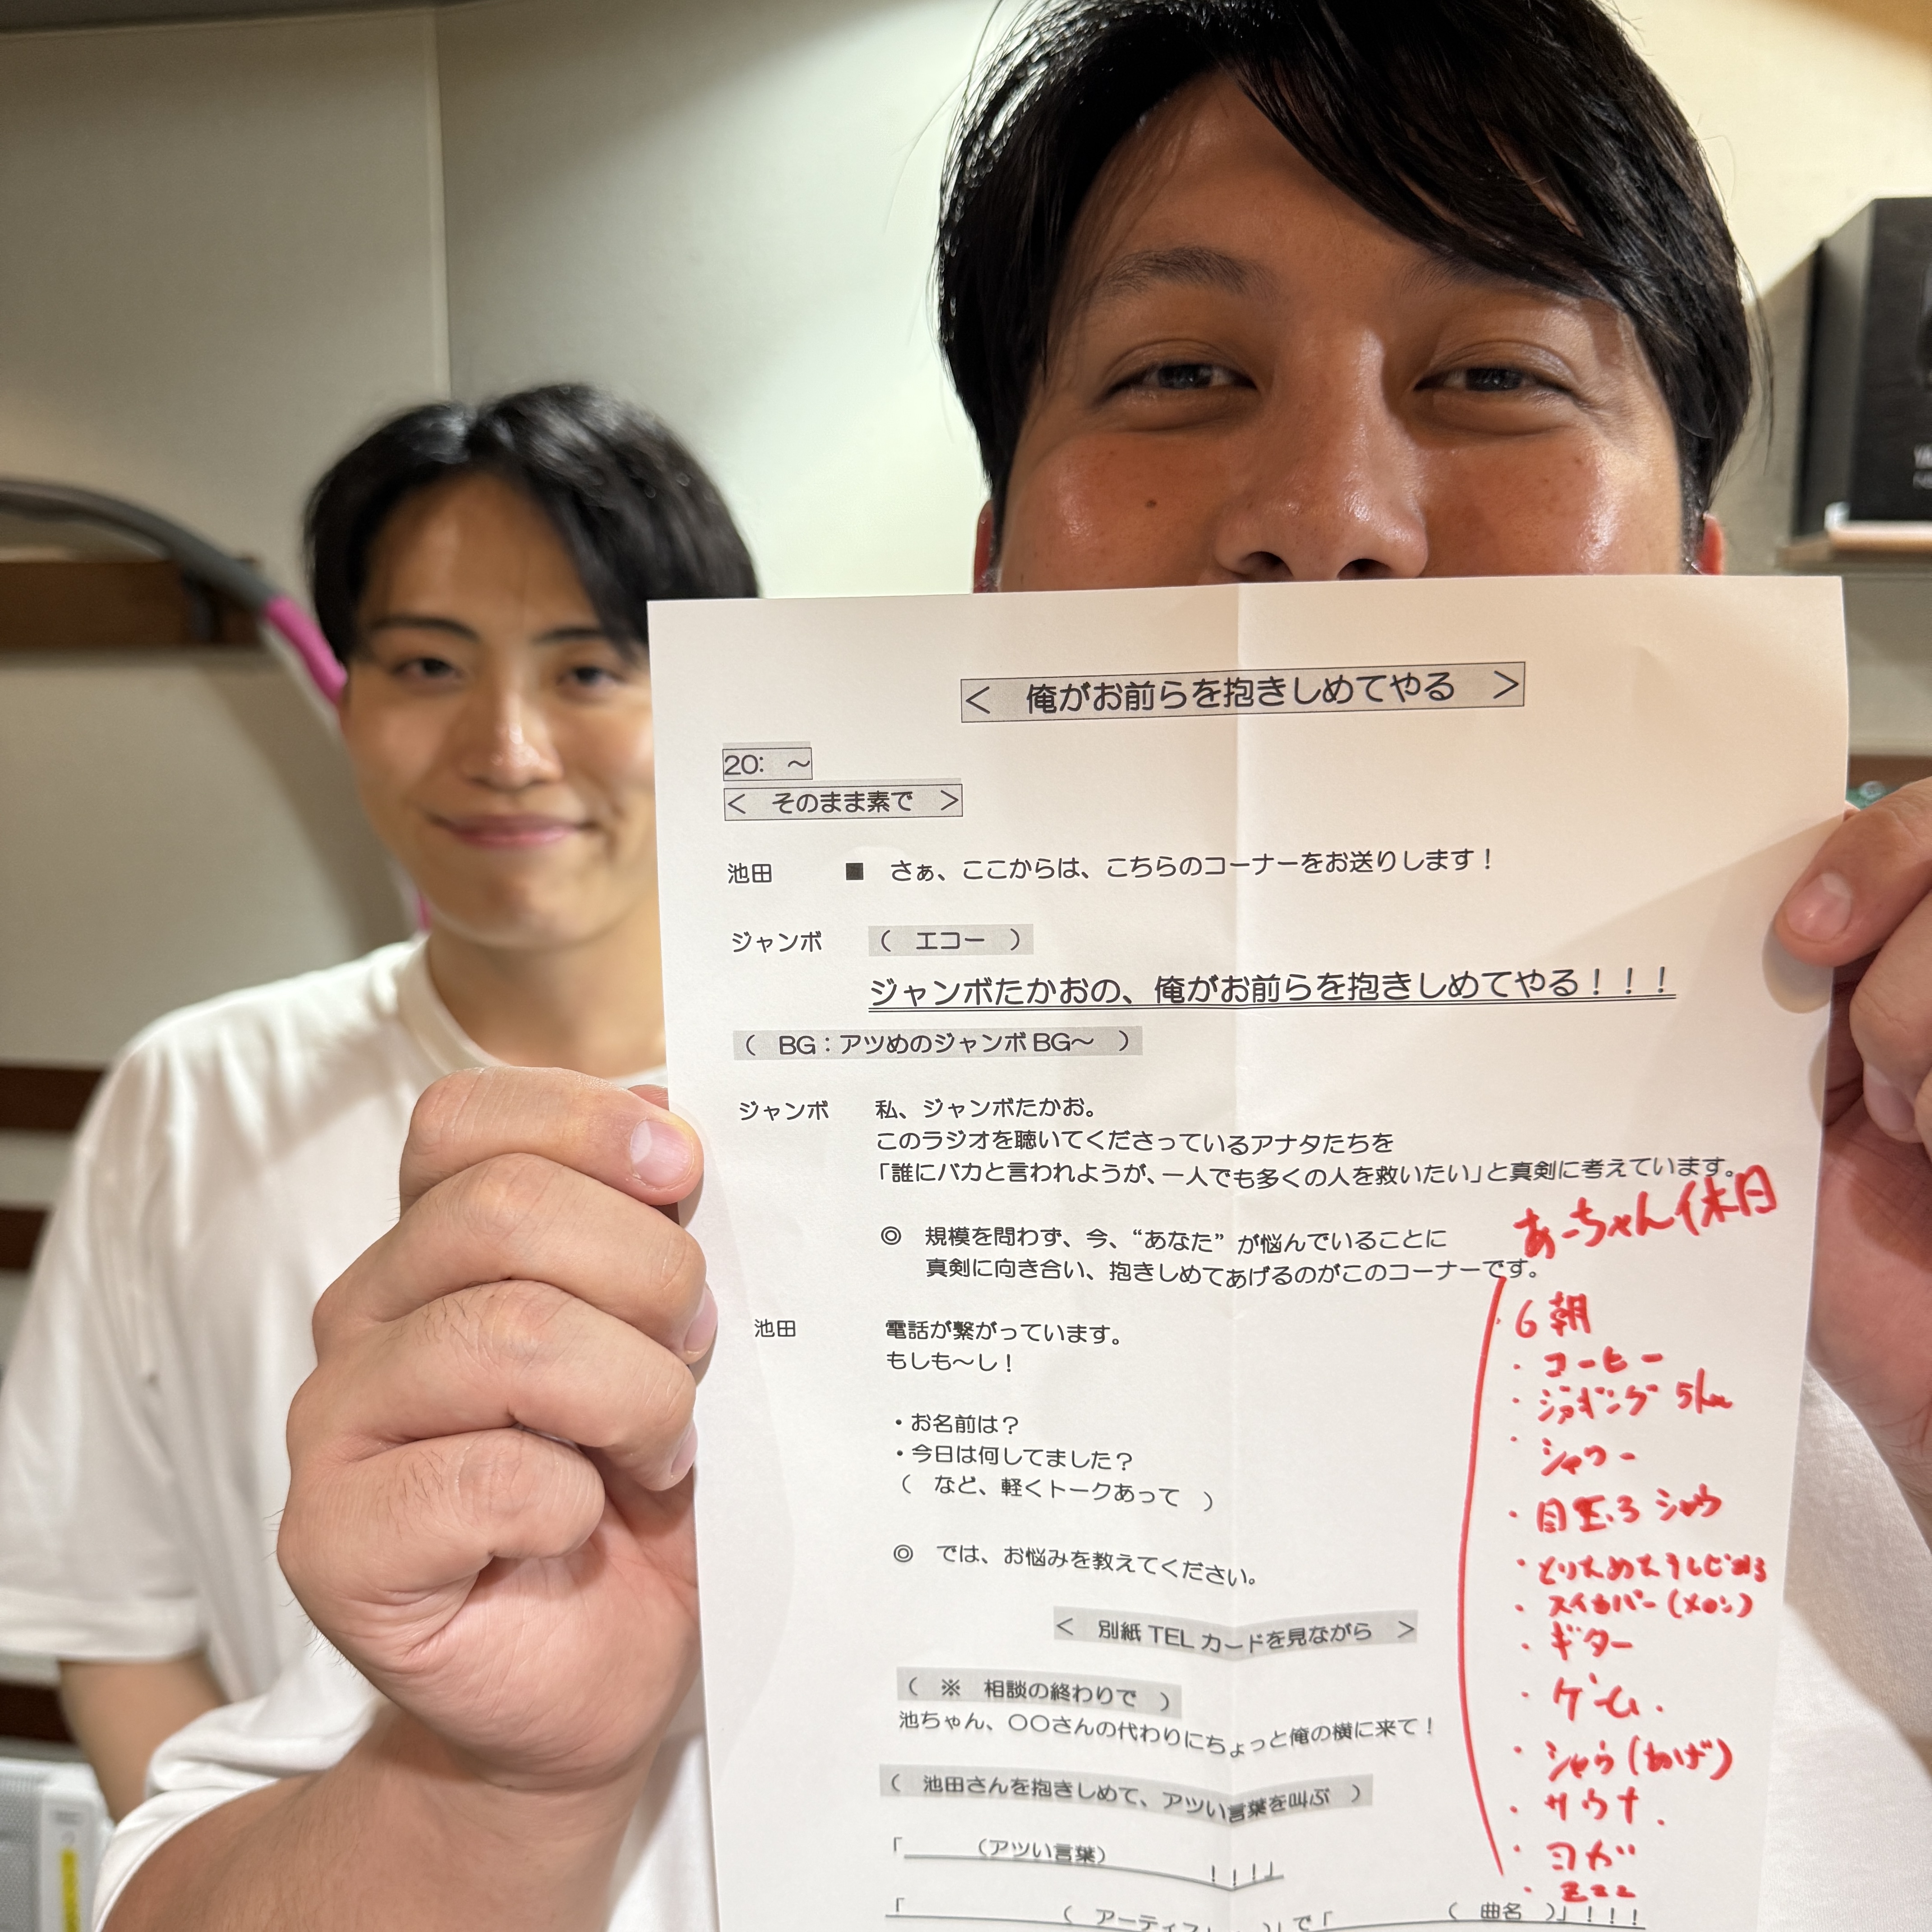 < 俺がお前らを抱きしめてやる >
20: ～
< そのまま素で >
池田 ■ さぁ、ここからは、こちらのコーナーをお送りします！
ジャンボ ( エコー )
ジャンボたかおの、俺がお前らを抱きしめてやる！！！
( BG：アツめのジャンボBG～ )
ジャンボ 私、ジャンボたかお。
このラジオを聴いてくださっているアナタたちを
「誰にバカと言われようが、一人でも多くの人を救いたい」と真剣に考えています。
◎ 規模を問わず、今、“あなた” が悩んでいることに
真剣に向き合い、抱きしめてあげるのがこのコーナーです。
池田 電話が繋がっています。
もしも～し！
・お名前は？
・今日は何してました？
( など、軽くトークあって )
◎ では、お悩みを教えてください。
< 別紙 TEL カードを見ながら >
( ※ 相談の終わりで )
池ちゃん、〇〇さんの代わりにちょっと俺の横に来て！
( 池田さんを抱きしめて、アツい言葉を叫ぶ )
「 (アツい言葉) ！！！」
「 ( )」で「 ( 曲名 )」！！！
あーちゃん休日
6 朝
・コーヒー
・ジョギング 5km
・シャワー
・スイカバー(メロン)
・ギター
・ゲーム.
・サウナ.
・ヨガ
・zzz